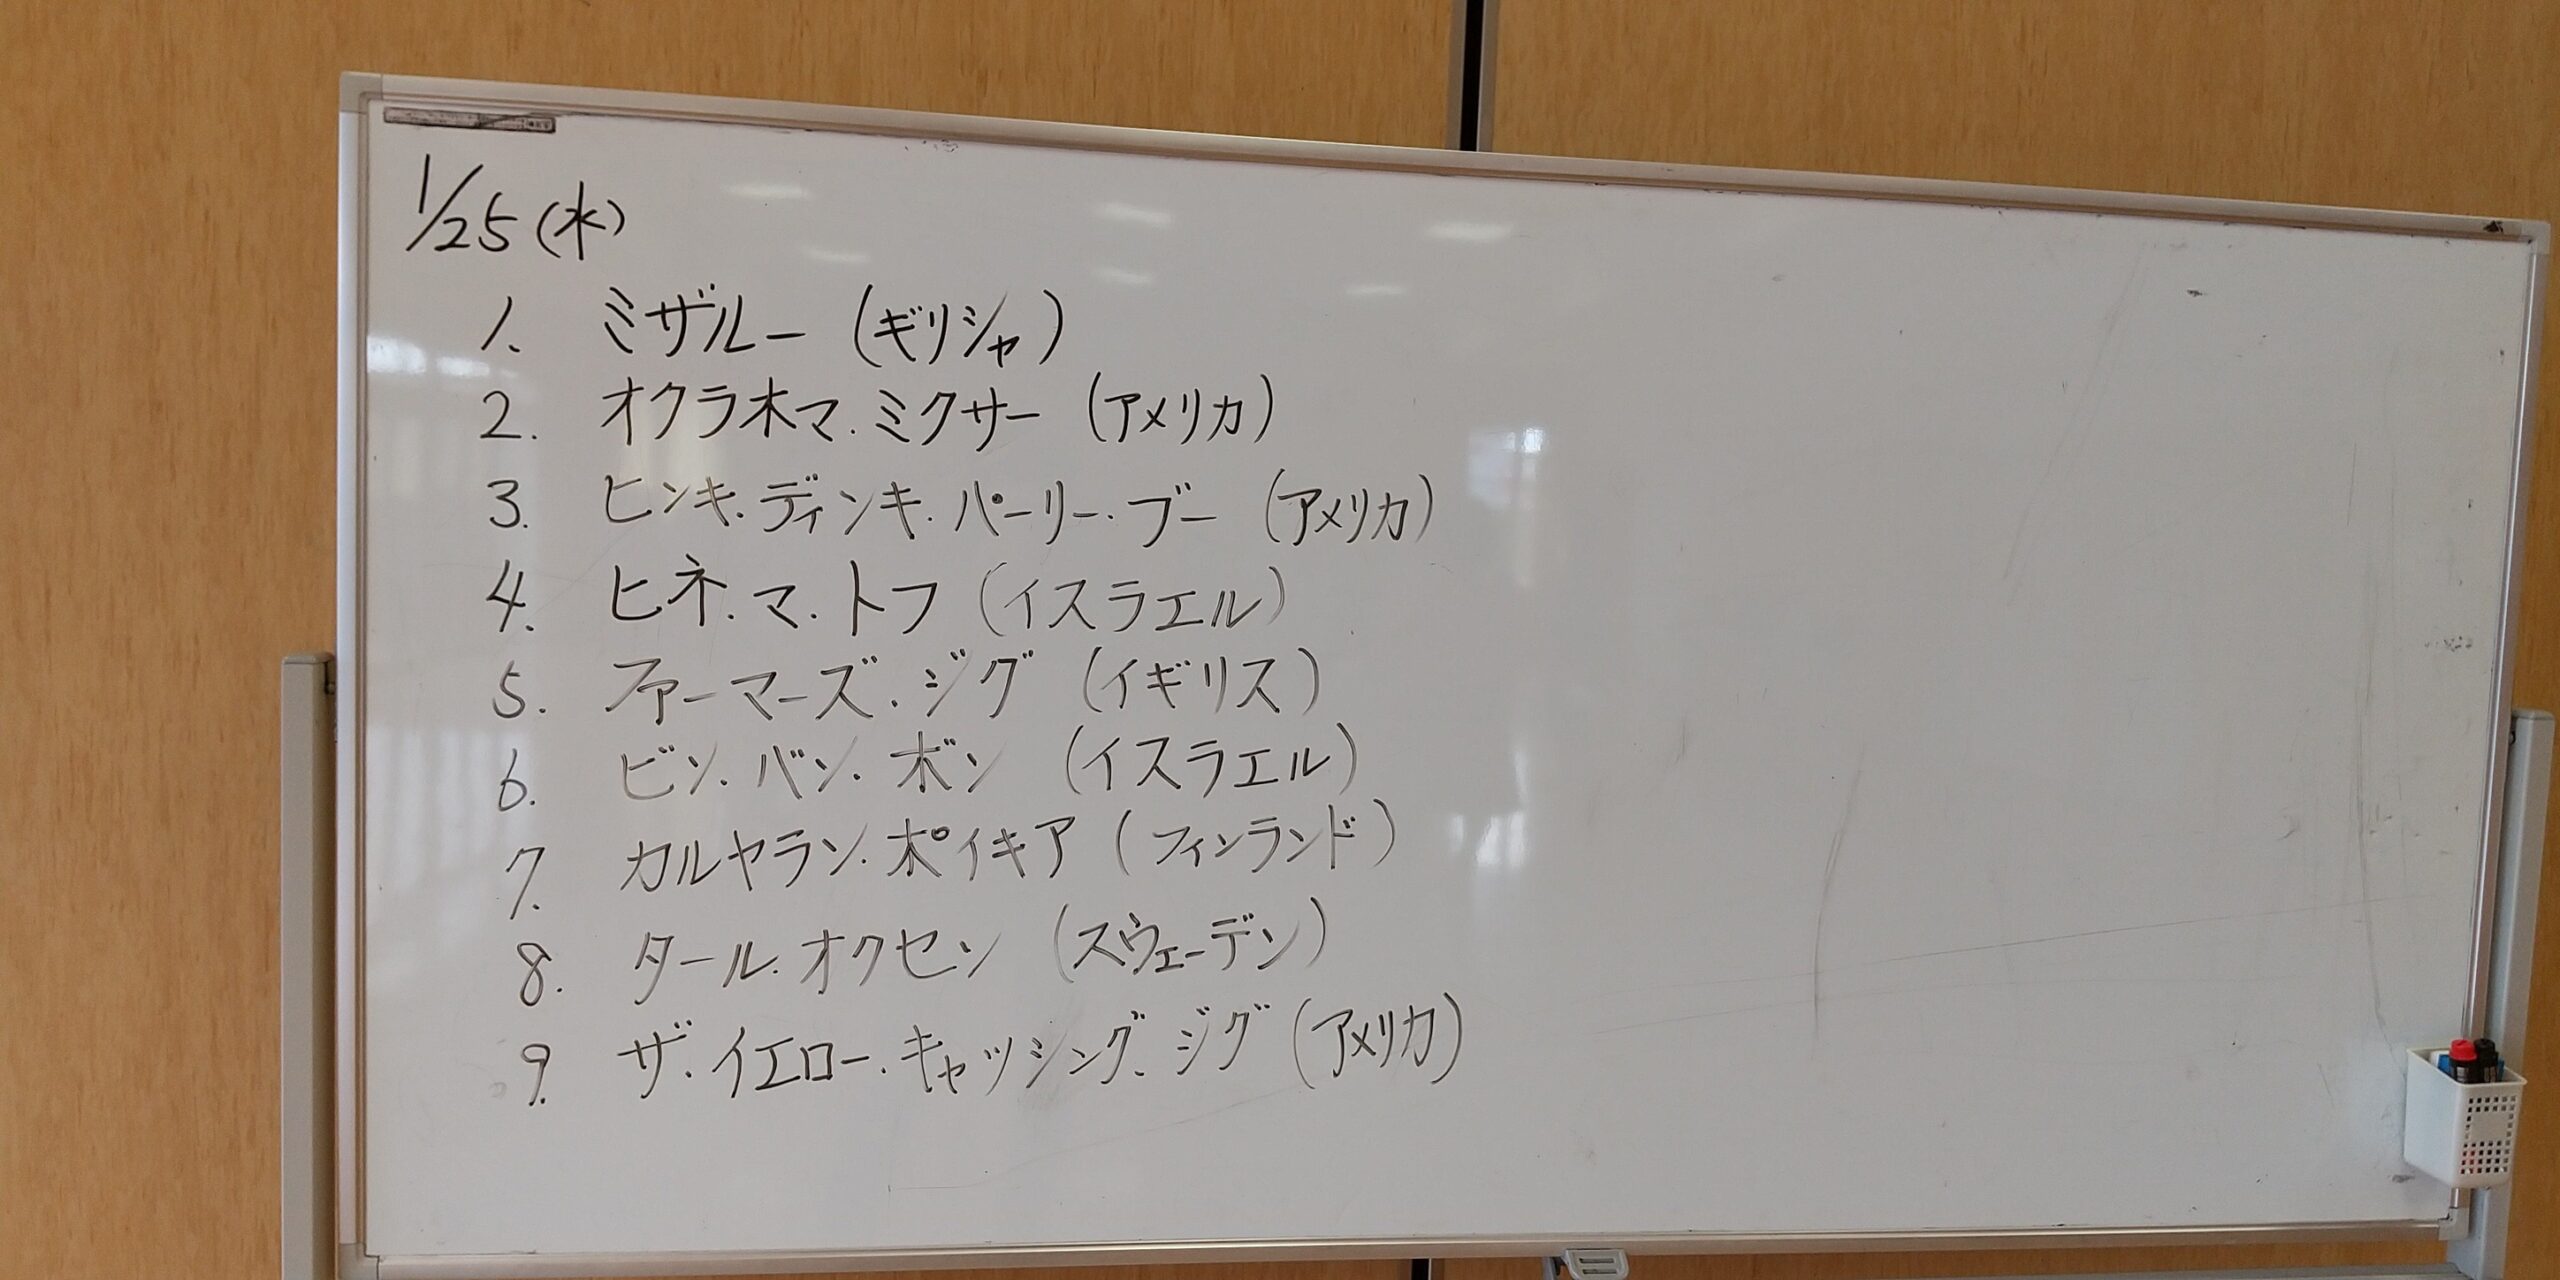 1/25(水)
1. ミザルー (ギリシャ)
2. オクラホマ.ミクサー (アメリカ)
3. ヒンキ.ディンキ.パーリー.ブー (アメリカ)
4. ヒネ.マ.トフ (イスラエル)
5. ファーマーズ.ジグ (イギリス)
6. ビン.バン.ボン (イスラエル)
7. カルヤラン.ポイキア (フィンランド)
8. タール.オクセン (スウェーデン)
9. ザ.イエロー.キャッシング.ジグ (アメリカ)